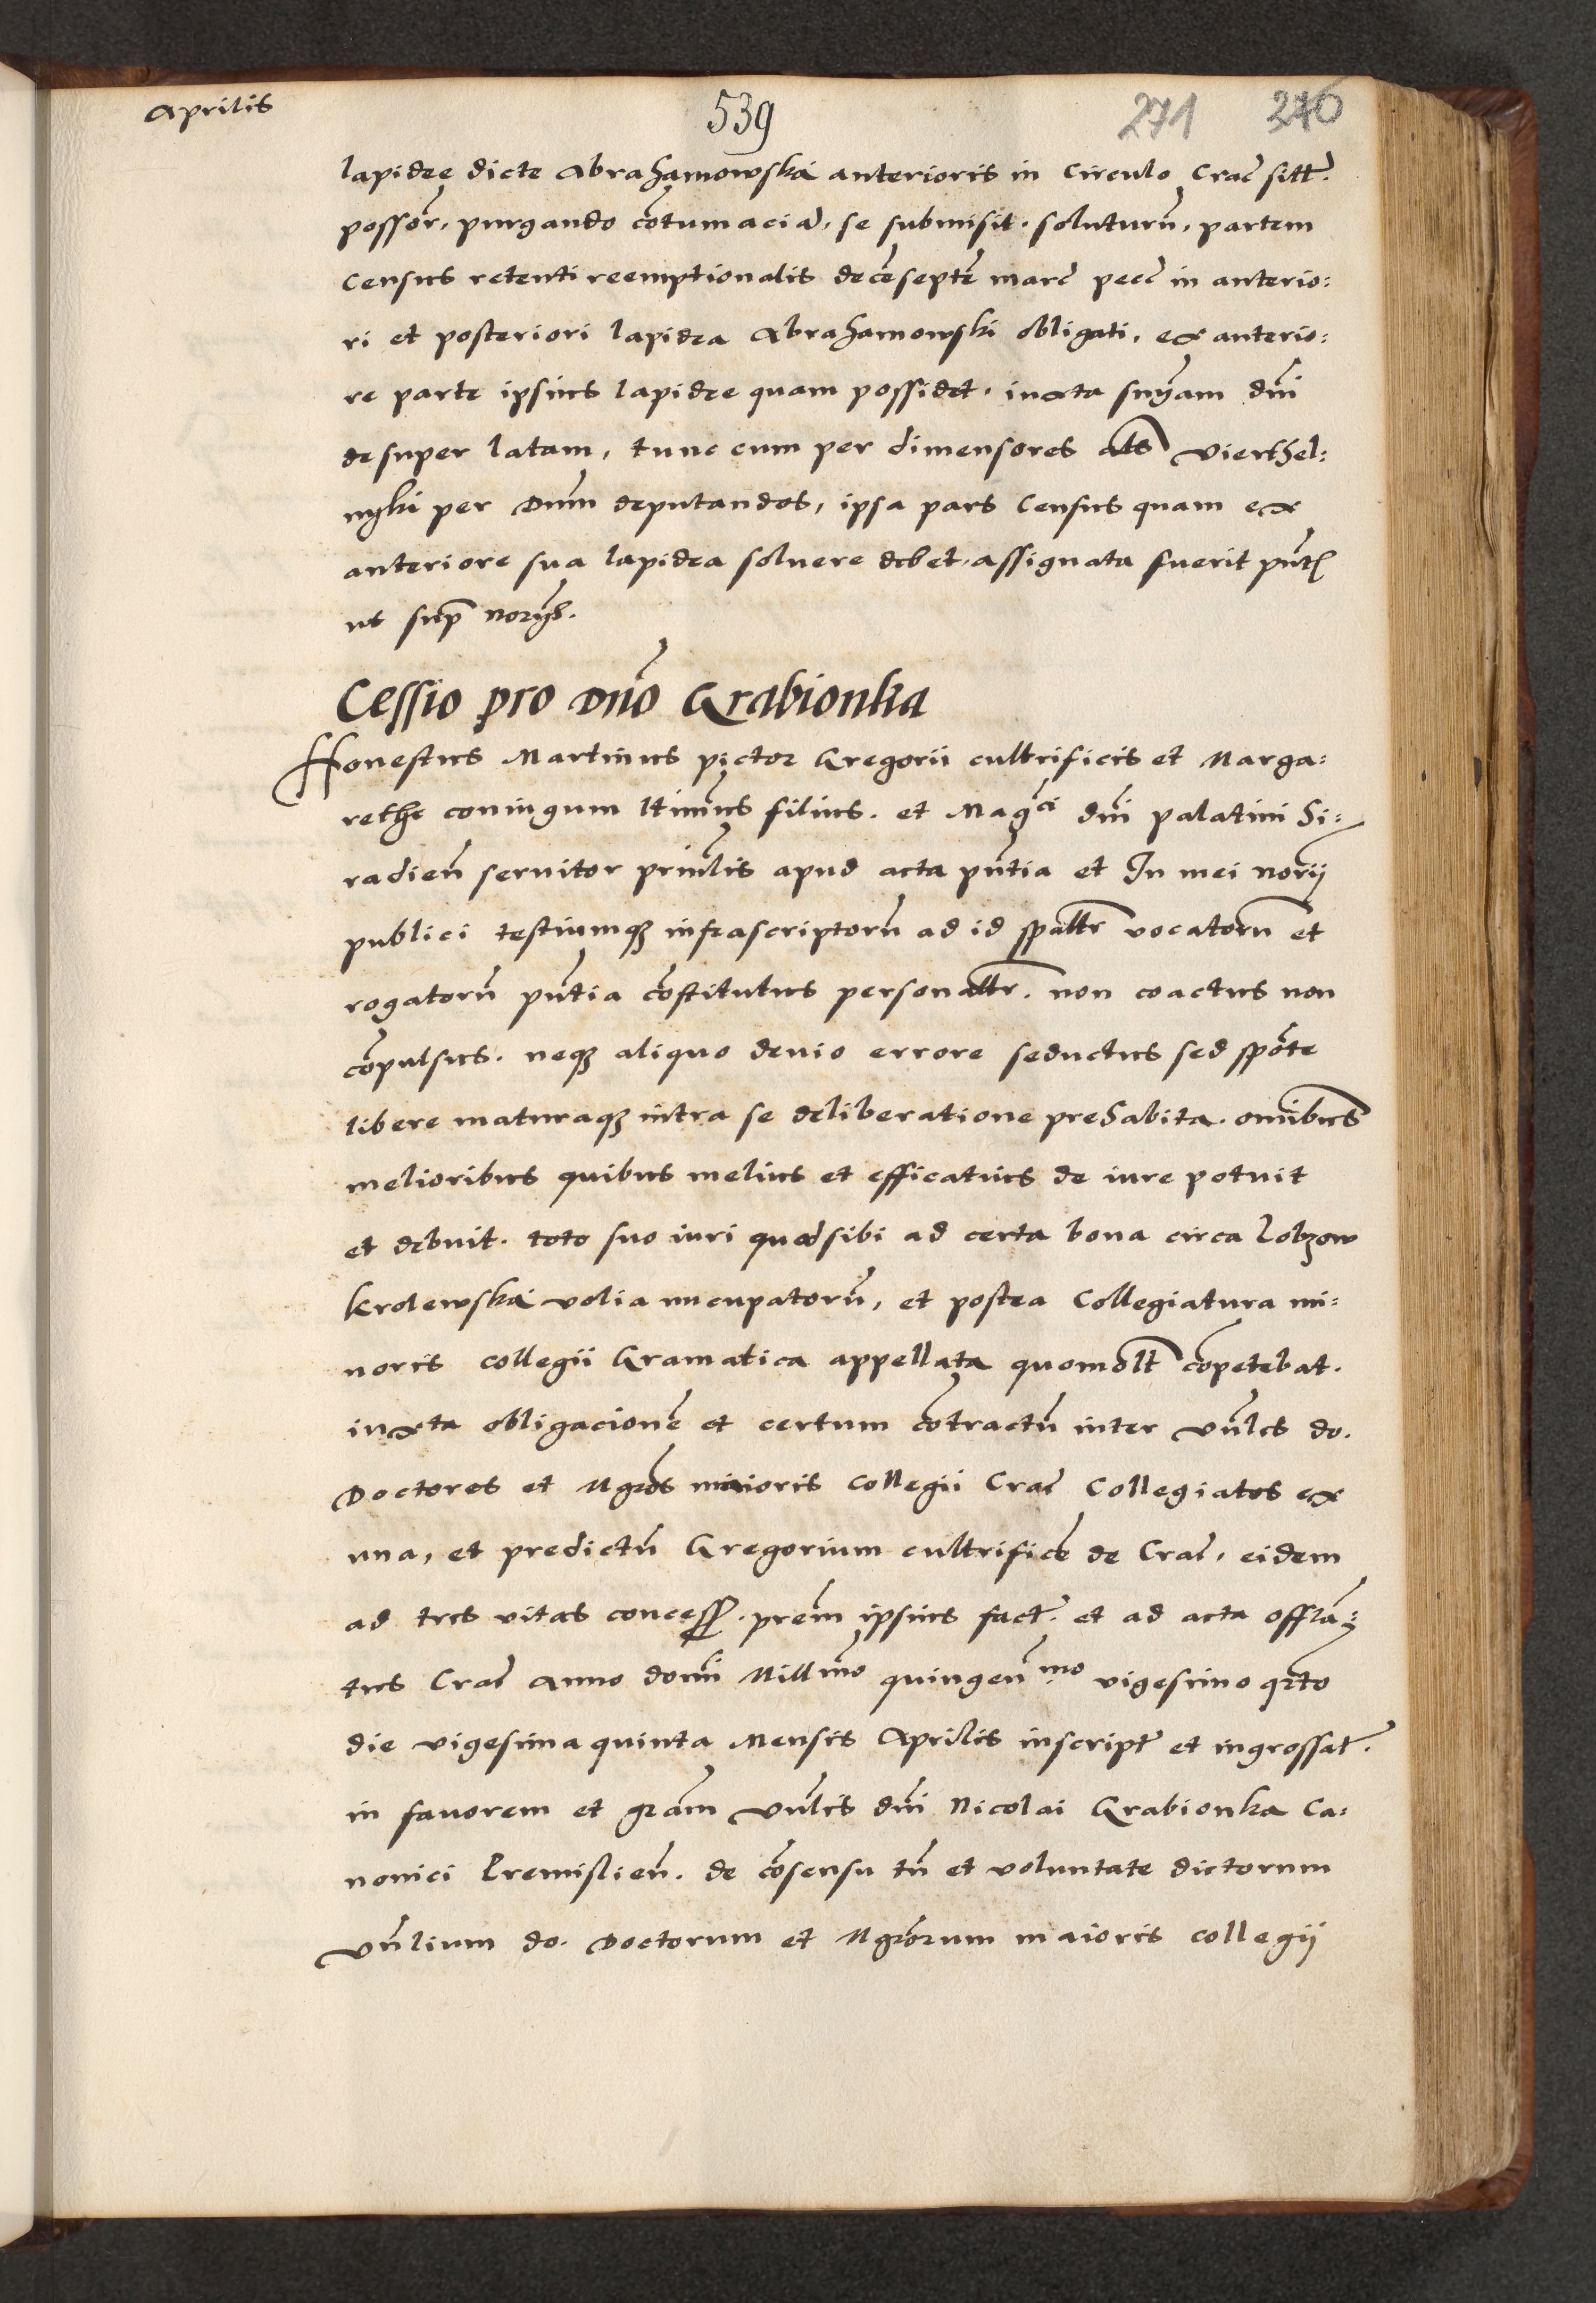 Aprilis
539
271 276
lapidee dicte Abrahamowska anterioris in Circulo Crac̃ sitt̃.
possor̃. purgando cõtumaciã. se submisit. soluturũ. partem
census retenti reemptionalis decẽseptẽ marc̃ pecc̃ in anterio:
ri et posteriori lapidea Abrahamowski obligati, ex anterio:
re parte ipsius lapidee quam possidet. iuxta sniam dni
desuper latam, tunc cum per dimensores als Vierthel:
nyki per Dnm deputandos, ipsa pars Census quam ex
anteriore sua lapidea soluere debet. assignata fuerit pñt
ut sup̃
Cessio pro Dño Grabionka
Honestus Martinus pictor Gregorii cultrificis et Marga:
rethe coniugum ltimus filius. et Magci dni palatini Si:
radieñ seruitor prinlis apud acta pñtia et In mei norii
publici testiumqꝫ infrascriptorũ ad id spaltr vocatorũ et
rogatorũ pñtia cõstitutus personaltr. non coactus non
cõpulsus. neqꝫ aliquo deuio errore seductus sed spõte
libere maturaqꝫ intra se deliberatione prehabita. omibus
melioribus quibus melius et efficatius de iure potuit
et debuit. toto suo iuri quod sibi ad certa bona circa Lobzow
Krolewska volia nucupatorũ, et postea Collegiatura mi:
noris collegii Gramatica appellata quomolt cõpetebat.
iuxta obligacionẽ et certum cõtractũ inter vñles do.
Doctores et Mgros maioris collegii Crac̃ Collegiatos ex
una, et predictũ Gregorium cultrificẽ de Crac̃, eidem
ad tres vitas concess. prem ipsius fact̃. et ad acta offiã:
tus Crac̃ Anno domi Millmo quingeñmo vigesimo qrto
die vigesima quinta Mensis Aprilis inscript̃ et ingrossat̃.
in fauorem et grãm vñlis dni Nicolai Grabionka Ca:
nonici Premislieñ. de cõsensu tñ et voluntate dictorum
vñlium do. Doctorum et Mgrorum maioris collegij